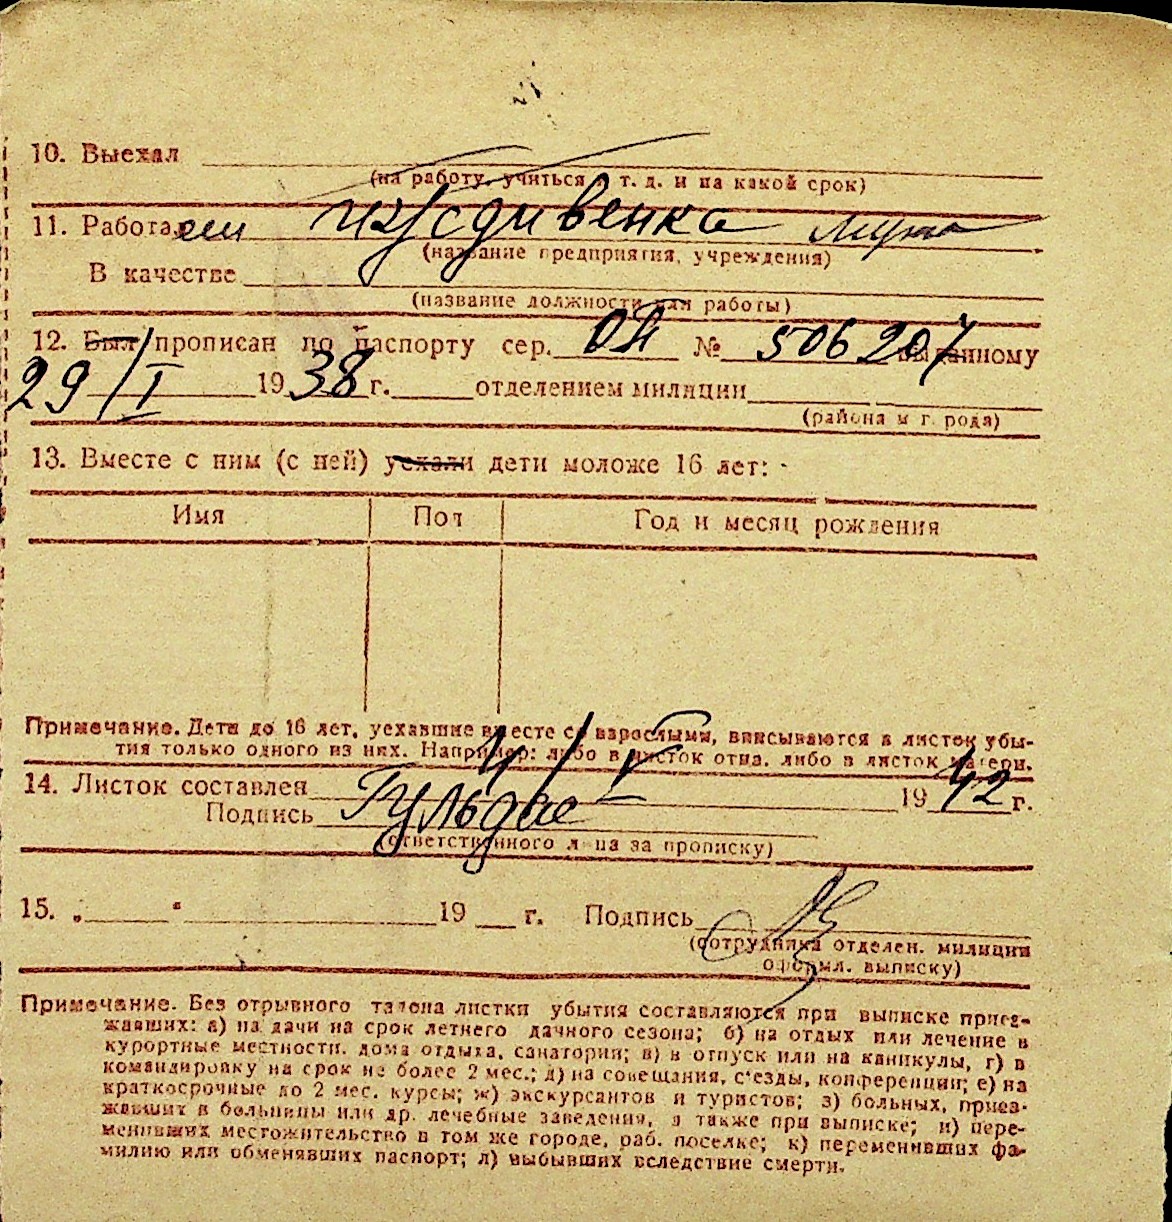 10. Выехал
(на работу, учиться и т. д. и на какой срок)
11. Работал иждивенка
(название предприятия, учреждения)
В качестве
(название должности или работы)
12. Был прописан по паспорту сер. № 506207 выданному
29/I 1938 г. отделением милиции
(района и города)
13. Вместе с ним (с ней) уехали дети моложе 16 лет:
Имя Пол Год и месяц рождения
Примечание. Дети до 16 лет, уехавшие вместе со взрослыми, вписываются в листок убы-
тия только одного из них. Например: либо в листок отца, либо в листок матери.
14. Листок составлен 4/V 1942 г.
Подпись
(ответственного лица за прописку)
15. „ “ 19 г. Подпись
(сотрудника отделен. милиции
оформл. выписку)
Примечание. Без отрывного талона листки убытия составляются при выписке приез-
жавших: а) на дачи на срок летнего дачного сезона; б) на отдых или лечение в
курортные местности, дома отдыха, санатории; в) в отпуск или на каникулы, г) в
командировку на срок не более 2 мес.; д) на совещания, с'езды, конференции; е) на
краткосрочные до 2 мес. курсы; ж) экскурсантов и туристов; з) больных, приез-
жавших в больницы или др. лечебные заведения, а также при выписке; и) пере-
менивших местожительство в том же городе, раб. поселке; к) переменивших фа-
милию или обменявших паспорт; л) выбывших вследствие смерти.